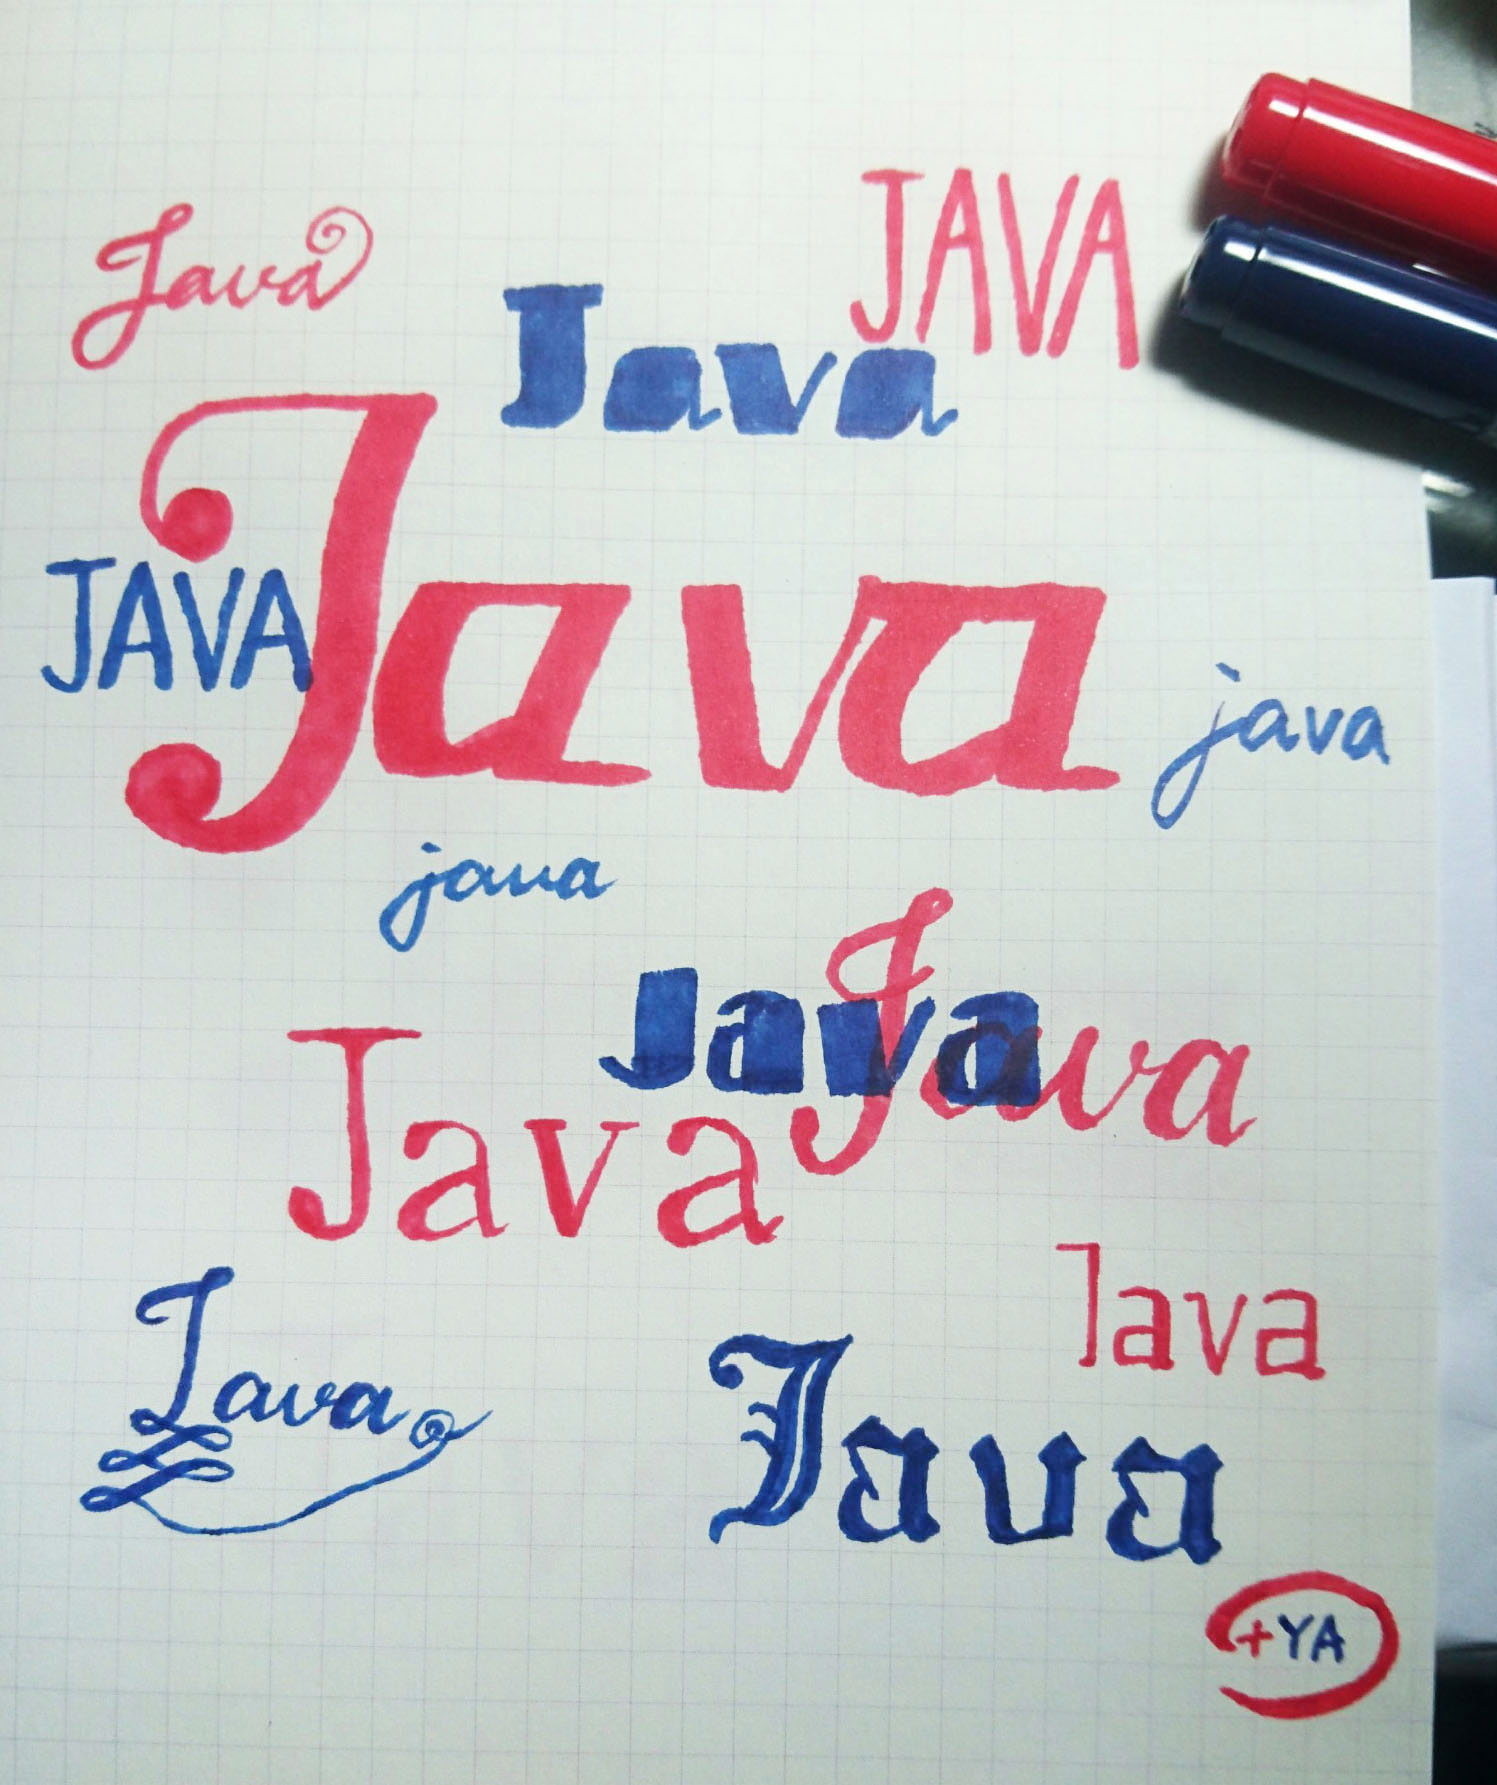 JAVA
Java
Java
Java
JAVA
java
java
Java
Java
Java
Java
Java
Java
+YA